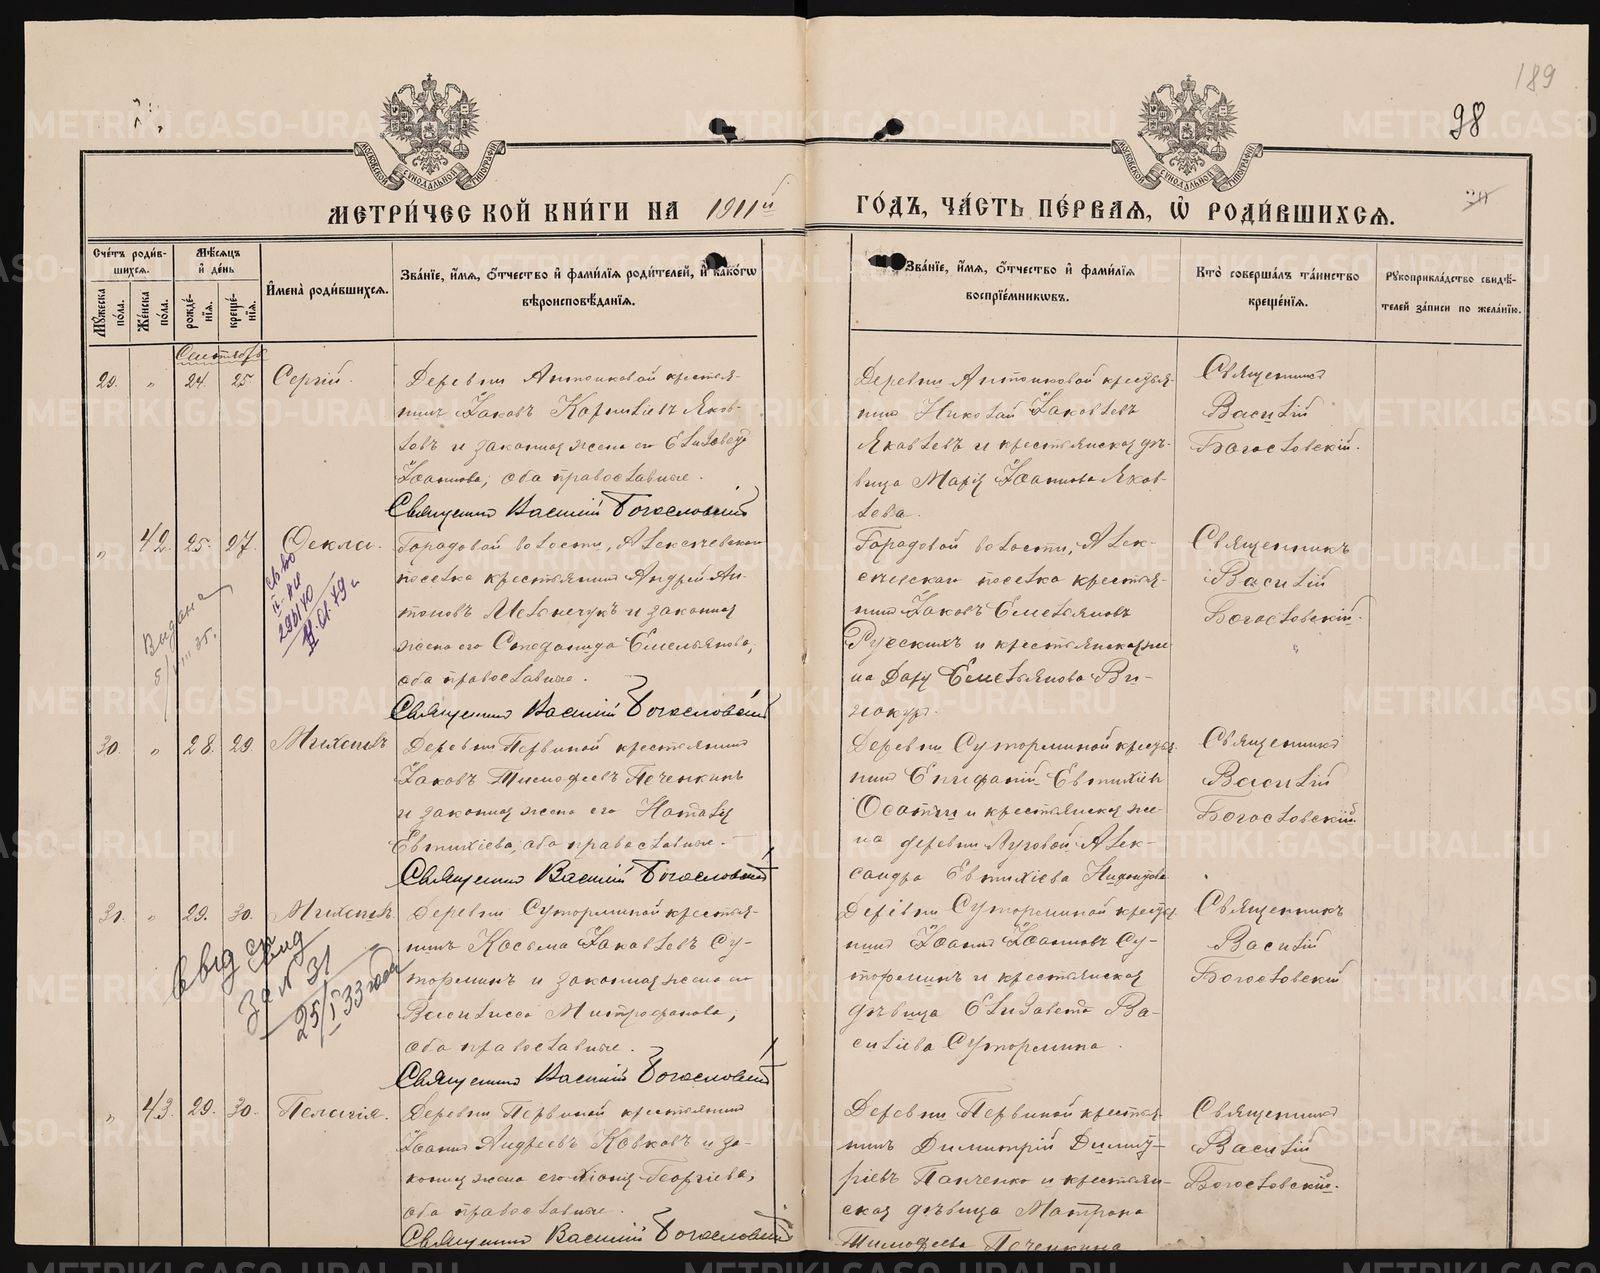 189
98
МЕТРИ́ЧЕСКОЙ КНИ́ГИ НА 1911й
ГО́ДЪ, ЧА́СТЬ ПЕ́РВАѦ, Ѽ РОДИ́ВШИХСѦ.
Сче́тъ роди́в-
шихсѧ.
Мꙋ́жеска по́ла.
Же́нска по́ла.
Мѣ́сѧцъ
и҆ де́нь
рожде́-
нїѧ.
креще́-
нїѧ.
И҆мена̀ роди́вшихсѧ.
Зва́нїе, и҆́мѧ, ѻ҆́тчество и҆ фами́лїѧ роди́телей, и҆ како́гѡ
вѣроисповѣ́данїѧ.
Зва́нїе, и҆́мѧ, ѻ҆́тчество и҆ фами́лїѧ
воспрїе́мникѡвъ.
Кто̀ соверша́лъ та́инство
креще́нїѧ.
Рꙋкоприкла́дство свидѣ́-
телей за́писи по жела́нїю.
Сентябрь
29. " 24. 25 Сергій.
Деревни Антоновой крестья-
нинъ Іаковъ Корниліевъ Яков-
левъ и законная жена его Елизавета
Іоаннова, оба православные.
Священникъ Василій Богословскій
Деревни Антоновой крестья-
нинъ Николай Іаковлевъ
Яковлевъ и крестьянская дѣ-
вица Марія Іоаннова Яков-
лева.
Священникъ
Василій
Богословскій.
" 42. 25. 27. Ѳекла.
Выдана
5/VIII 35.
Городовой волости, Алексѣевскаго
поселка крестьянинъ Андрей Ан-
тоновъ Мельничукъ и законная
жена его Стефанида Емельянова,
оба православные.
Священникъ Василій Богословскій
Городовой волости, Алек-
сѣевскаго поселка крестья-
нинъ Іаковъ Емельяновъ
Русскихъ и крестьянская же-
на Дарія Емельянова Ви-
нокуръ.
Священникъ
Василій
Богословскій.
30. " 28. 29. Михаилъ
Деревни Первиной крестьянинъ
Іаковъ Тимофеевъ Печенкинъ
и законная жена его Наталія
Евтихіева, оба православные.
Священникъ Василій Богословскій
Деревни Суторминой крестья-
нинъ Епифаній Евтихіевъ
и крестьянская же-
на деревни Луговой Алек-
сандра Евтихіева
Священникъ
Василій
Богословскій.
31. " 29. 30. Михаилъ.
за № 31
25/I 33 года
Деревни Суторминой крестья-
нинъ Косьма Іаковлевъ Су-
торминъ и законная жена его
Василисса Митрофанова,
оба православные.
Священникъ Василій Богословскій
Деревни Суторминой крестья-
нинъ Іоаннъ Іоанновъ Су-
торминъ и крестьянская
дѣвица Елизавета Ва-
силіева Сутормина.
Священникъ
Василій
Богословскій
" 43. 29. 30. Пелагія.
Деревни Первиной крестьянинъ
Іоаннъ Андреевъ Ковковъ и за-
конная жена его Хіонія Георгіева,
оба православные.
Священникъ Василій Богословскій
Деревни Первиной крестья-
нинъ Димитрій Димит-
ріевъ Панченко и крестьян-
ская дѣвица Матрона
Тимофеева Печенкина
Священникъ
Василій
Богословскій.